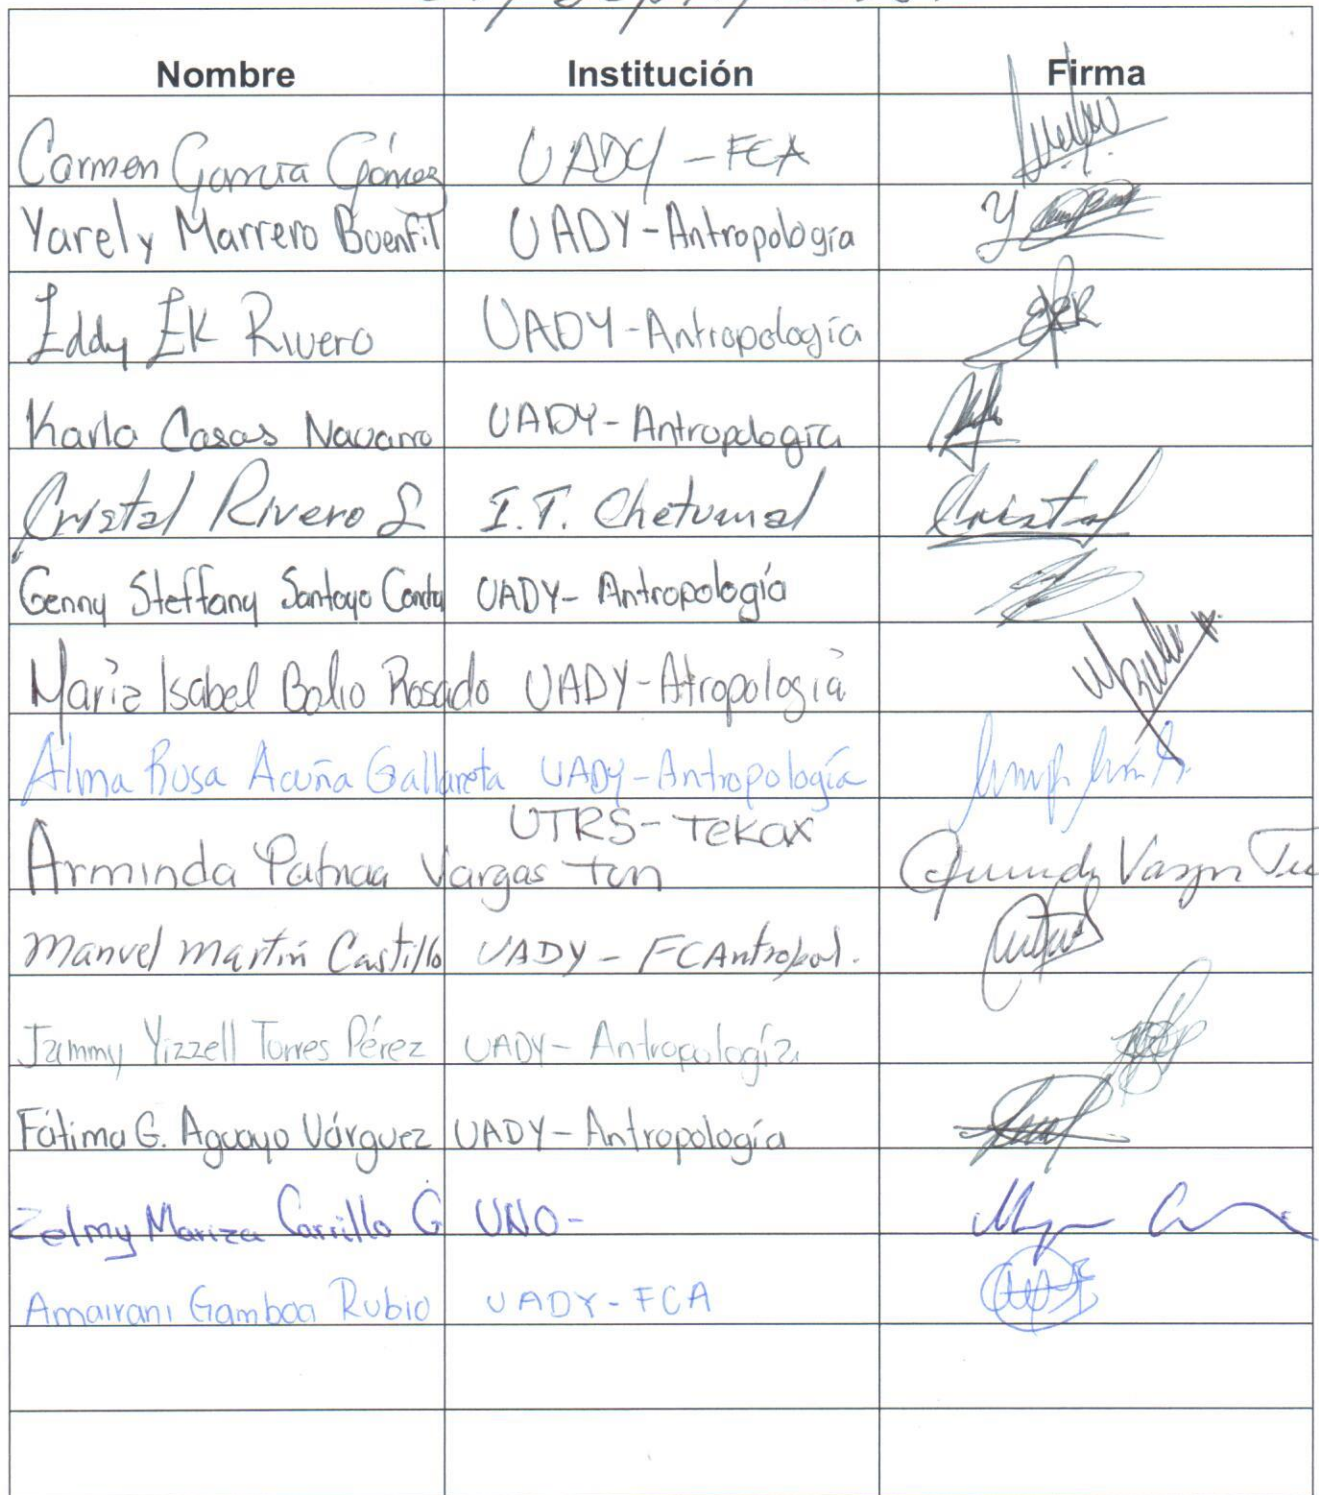 Nombre Institución Firma
Carmen García Gómez UADY - FCA
Yarely Marrero Buenfil UADY-Antropología
Eddy EK Rivero UADY-Antropología
Karla Casas Navarro UADY-Antropología
Cristal Rivero S I.T. Chetumal Cristal
Genny Steffany Santoyo Canto UADY- Antropología
María Isabel Bolio Rosado UADY-Atropología
Alma Rosa Acuña Gallareta UADY-Antropología
UTRS- Tekax
Arminda Patricia Vargas Tun
Manuel Martín Castillo UADY - FCAntropol.
Jammy Yizzell Torres Pérez UADY- Antropología
Fátima G. Aguayo Várguez UADY- Antropología
Zelmy Mariza Carrillo G UNO-
Amairani Gamboa Rubio UADY-FCA